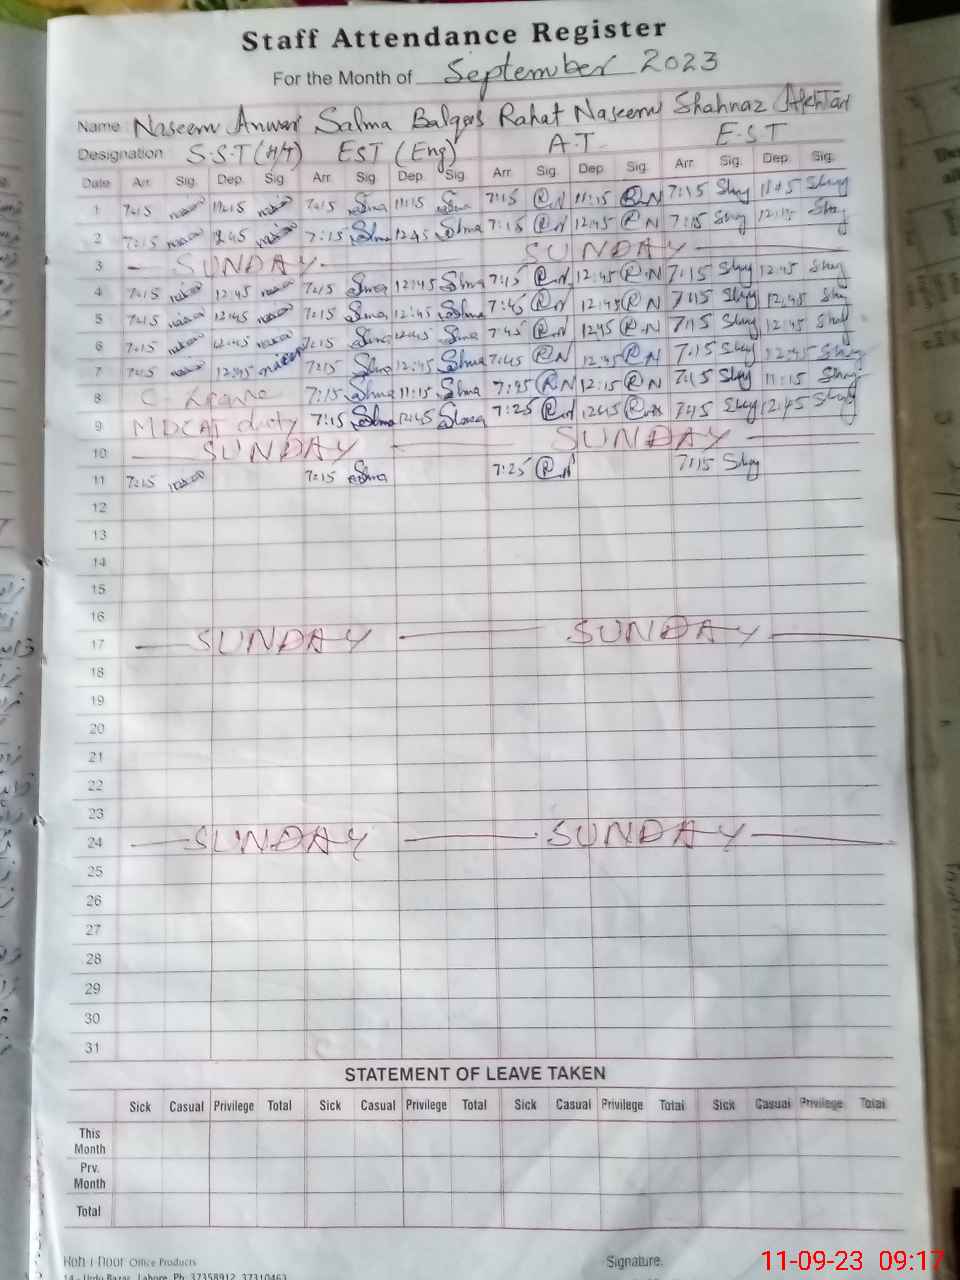 Staff Attendance Register
For the Month of September 2023
Name Naseem Anwar Salma Balqees Rahat Naseem Shahnaz Akhtar
Designation S.S.T (H/T) EST (Eng) A.T E.S.T
Date Arr. Sig. Dep. Sig. Arr. Sig. Dep. Sig. Arr. Sig. Dep. Sig. Arr. Sig. Dep. Sig.
1 7:15 11:15 7:15 Salma 11:15 Salma 7:15 R.N 11:15 R.N 7:15 Shng 11:15 Shng
2 7:15 12:45 7:15 Salma 12:45 Salma 7:15 R.N 12:45 R.N 7:15 Shng Shng
3 SUNDAY SUNDAY
4 7:15 12:45 7:15 Salma 12:45 Salma 7:45 R.N 12:45 R.N 7:15 Shng 12:45 Shng
5 7:15 12:45 7:15 Salma 12:45 Salma 7:45 R.N 12:45 R.N 7:15 Shng 12:45 Shng
6 7:15 12:45 7:15 Salma 12:45 Salma 7:45 R.N 12:45 R.N 7:15 Shng 12:45 Shng
7 7:15 12:45 7:15 Salma 12:45 Salma 7:45 R.N 12:45 R.N 7:15 Shng 12:45 Shng
8 C. Leave 7:15 Salma 11:15 Salma R.N 12:15 R.N 7:15 Shng 11:15 Shng
9 MDCAT duty 7:15 Salma 12:45 Salma 7:25 R.N 12:45 R.N Shng 12:45 Shng
10 SUNDAY SUNDAY
11 7:15 7:15 Salma 7:25 R.N 7:15 Shng
12
13
14
15
16
17 SUNDAY SUNDAY
18
19
20
21
22
23
24 SUNDAY SUNDAY
25
26
27
28
29
30
31
STATEMENT OF LEAVE TAKEN
Sick Casual Privilege Total Sick Casual Privilege Total Sick Casual Privilege Total Sick Casual Privilege Total
This Month
Prv. Month
Total
Koh-i-Noor Office Products Signature.
14 - Urdu Bazar, Lahore. Ph: 37358912, 37310463
11-09-23 09:17